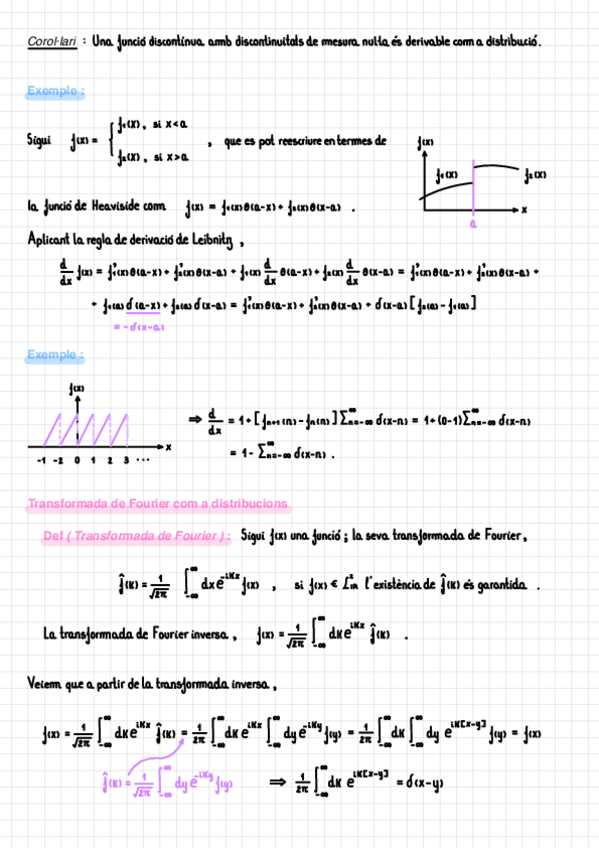 Corol·lari : Una funció discontínua amb discontinuitats de mesura nul·la és derivable com a distribució.
Exemple :
Sigui f(x) = { f₁(x), si x<a
f₂(x), si x>a
, que es pot reescriure en termes de
f(x)
f₁(x)
f₂(x)
x
a
la funció de Heaviside com f(x) = f₁(x)θ(a-x) + f₂(x)θ(x-a) .
Aplicant la regla de derivació de Leibnitz ,
d/dx f(x) = f₁'(x)θ(a-x) + f₂'(x)θ(x-a) + f₁(x) d/dx θ(a-x) + f₂(x) d/dx θ(x-a) = f₁'(x)θ(a-x) + f₂'(x)θ(x-a) +
+ f₁(a) δ(a-x) + f₂(a) δ(x-a) = f₁'(x)θ(a-x) + f₂'(x)θ(x-a) + δ(x-a) [ f₂(a) - f₁(a) ]
= -δ(x-a)
Exemple :
f(x)
x
-1 -2 0 1 2 3 ...
⇒ d/dx = 1 + [ fₙ₊₁(n) - fₙ(n) ] Σₙ₌₋∞^∞ δ(x-n) = 1 + (0-1) Σₙ₌₋∞^∞ δ(x-n)
= 1 - Σₙ₌₋∞^∞ δ(x-n) .
Transformada de Fourier com a distribucions
Def ( Transformada de Fourier ) : Sigui f(x) una funció ; la seva transformada de Fourier,
f̂(k) = 1/√2π ∫₋∞^∞ dx e^-ikx f(x) , si f(x) ∈ L¹ᵢₙ l'existència de f̂(k) és garantida .
La transformada de Fourier inversa , f(x) = 1/√2π ∫₋∞^∞ dk e^ikx f̂(k) .
Veiem que a partir de la transformada inversa ,
f(x) = 1/√2π ∫₋∞^∞ dk e^ikx f̂(k) = 1/2π ∫₋∞^∞ dk e^ikx ∫₋∞^∞ dy e^-iky f(y) = 1/2π ∫₋∞^∞ dk ∫₋∞^∞ dy e^ik[x-y] f(y) = f(x)
f̂(k) = 1/√2π ∫₋∞^∞ dy e^-iky f(y) ⇒ 1/2π ∫₋∞^∞ dk e^ik[x-y] = δ(x-y)